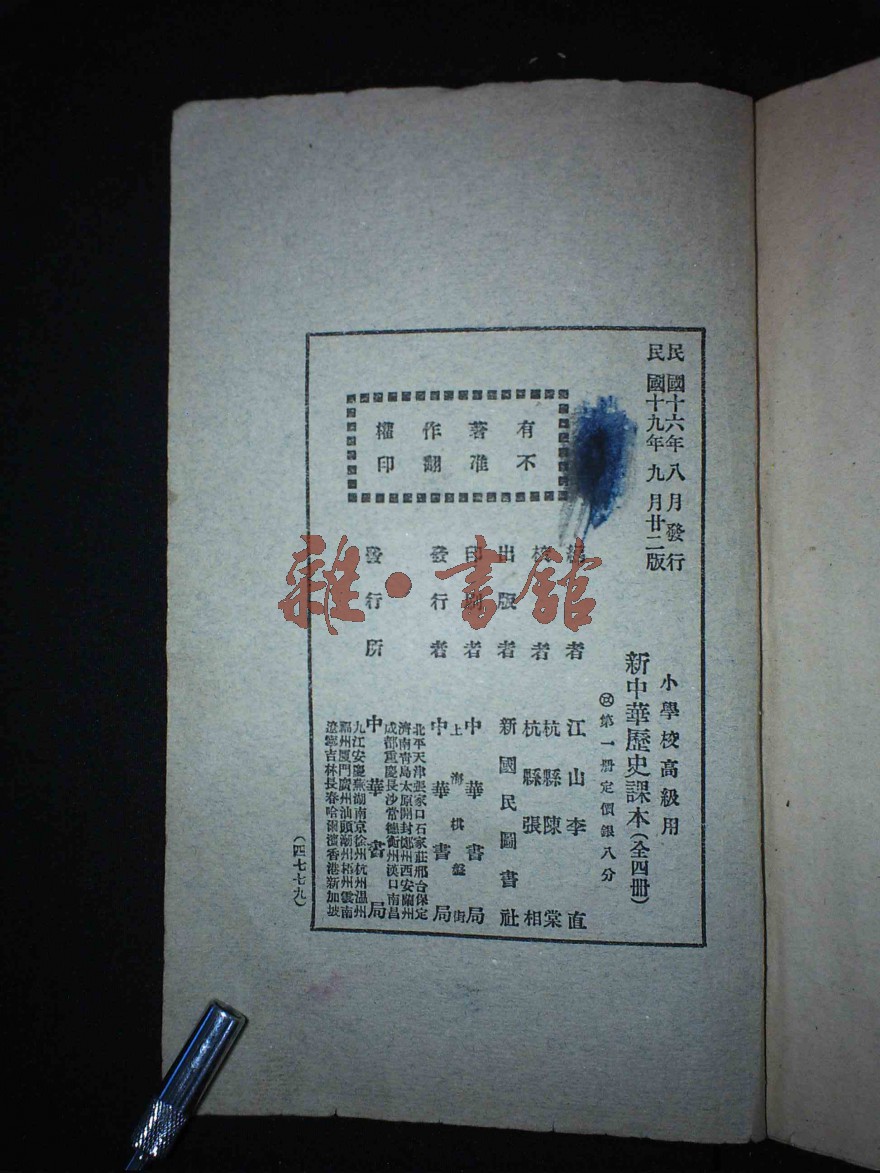 民國十六年八月發行
民國十九年九月廿二版
小學校高級用
新中華歷史課本（全四冊）
第一册定價銀八分
有著作權
不准翻印
編者 江山李直
校者 杭縣陳棠
杭縣張相
出版者 新國民圖書社
印刷者 中華書局
上海棋盤街
發行者 中華書局
發行所 中華書局
北平天津張家口石家莊邢台保定
濟南青島太原開封鄭州西安蘭州
成都重慶長沙常德衡州漢口南昌
九江安慶蕪湖南京徐州杭州溫州
福州厦門廣州汕頭潮州梧州雲南
遼寧吉林長春哈爾濱香港新加坡
（四七七九）
雜·書館